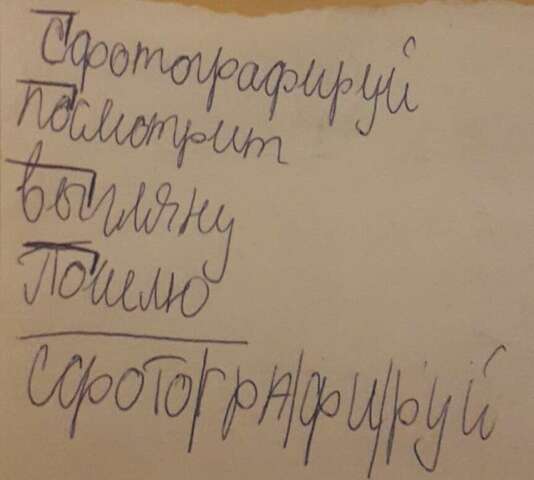 Сфотографируй
посмотрит
выгляну
Пошлю
СФОТО/ГРА/ФИ/РУЙ